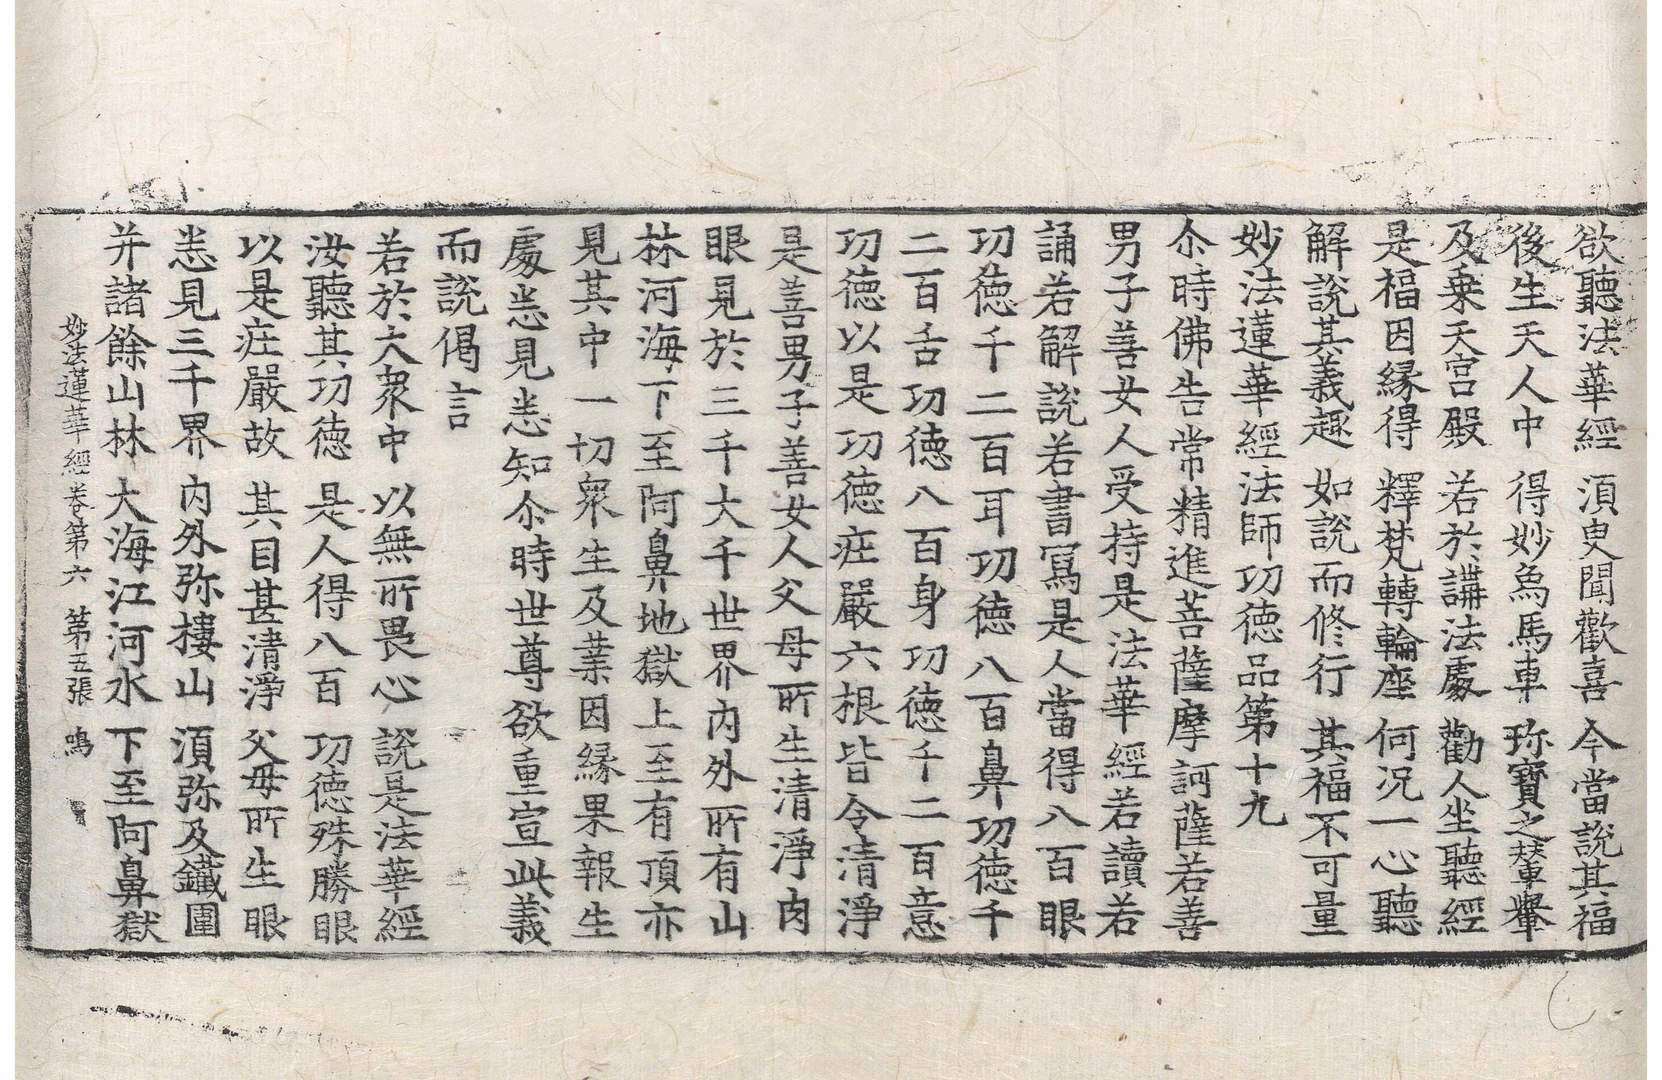 欲聽法華經 湏臾聞歡喜 今當說其福
後生天人中 得妙鳥馬車 珍寶之輦轝
及乗天宫殿 若於講法處 勸人坐聽經
是福因緣得 釋梵轉輪座 何况一心聽
解說其義趣 如說而修行 其福不可量
妙法蓮華經法師功德品第十九
尒時佛告常精進菩薩摩訶薩若善
男子善女人受持是法華經若讀若
誦若解說若書寫是人當得八百眼
功德千二百耳功德八百鼻功德千
二百舌功德八百身功德千二百意
功德以是功德㽵嚴六根皆令清淨
是善男子善女人父母所生清淨肉
眼見於三千大千世界内外所有山
林河海下至阿鼻地獄上至有頂亦
見其中一切衆生及業因緣果報生
處悉見悉知尒時世尊欲重宣此義
而說偈言
若於大衆中 以無所畏心 說是法華經
汝聽其功德 是人得八百 功德殊勝眼
以是㽵嚴故 其目甚清淨 父母所生眼
悉見三千界 内外弥樓山 湏弥及鐵圍
并諸餘山林 大海江河水 下至阿鼻獄
妙法蓮華經卷第六 第五張 鳴